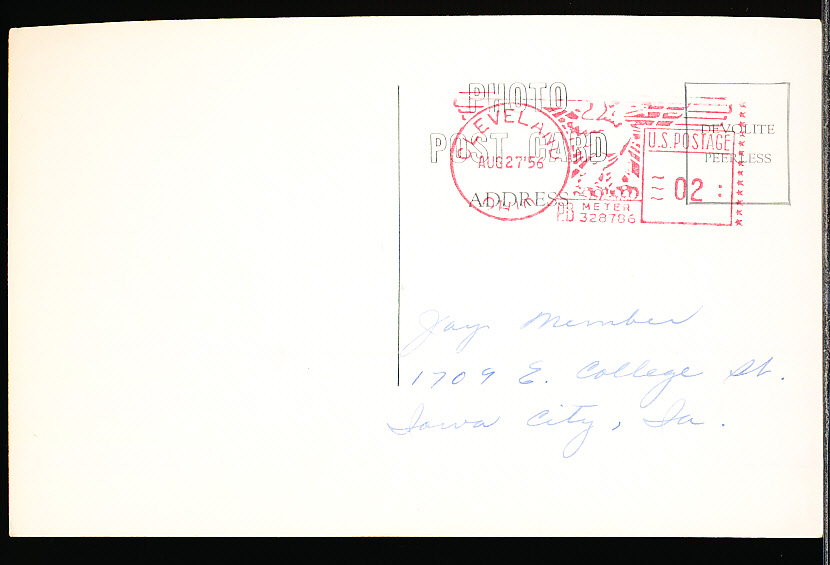 PHOTO
POST CARD
ADDRESS
DEVOLITE
PEERLESS
CLEVELAND
AUG 27 '56
OHIO
PB METER
328786
U.S. POSTAGE
02
Jay Member
1709 E. College St.
Iowa City, Ia.